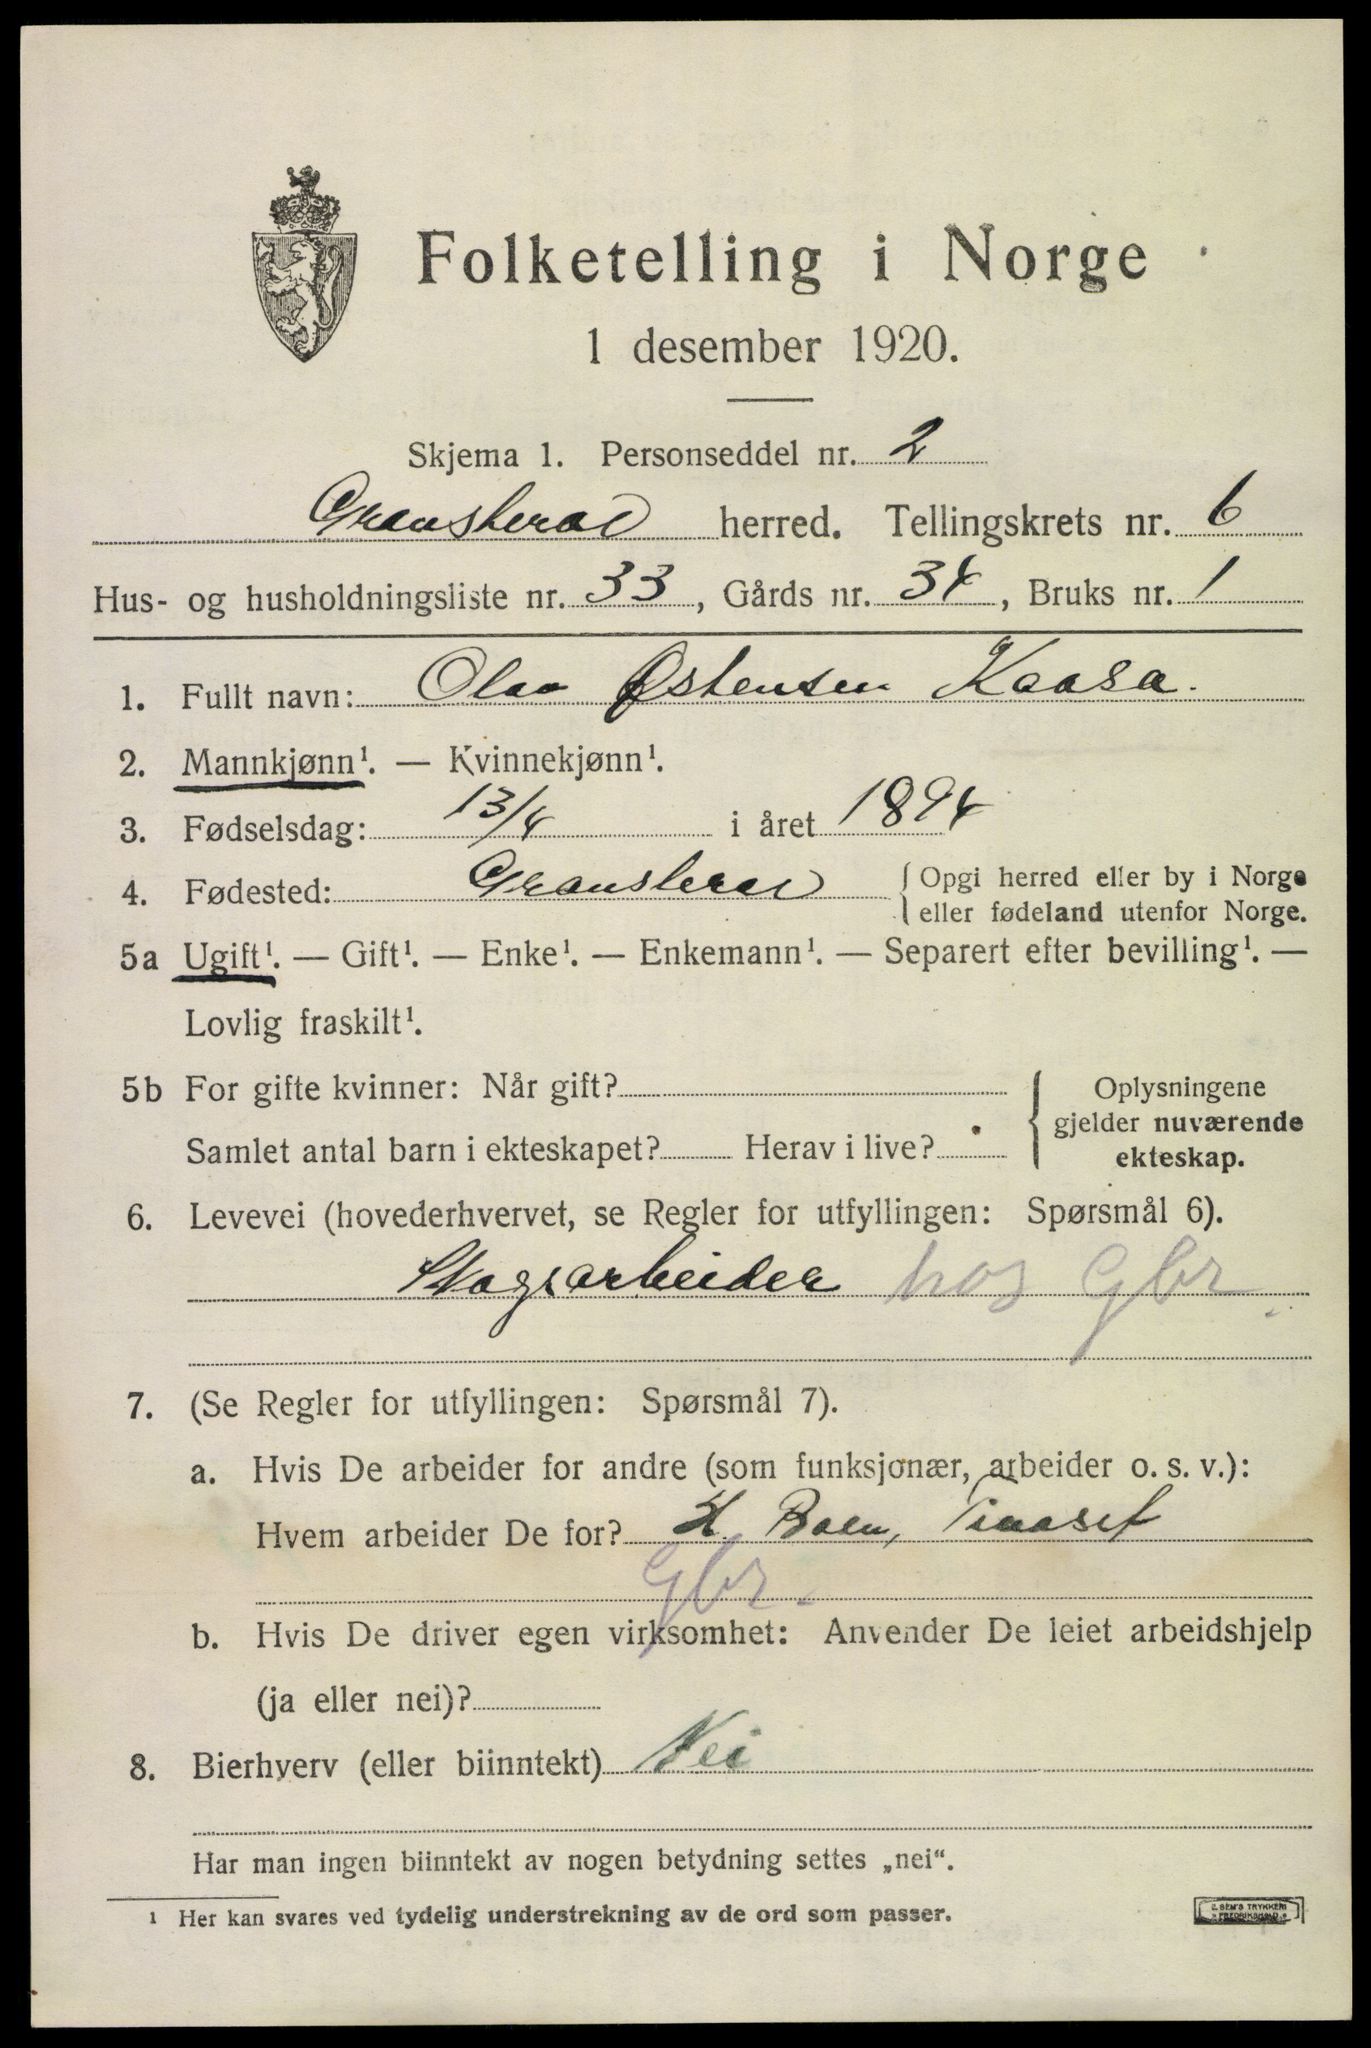 Folketelling i Norge
1 desember 1920.
Skjema 1. Personseddel nr. 2
Gransherad herred. Tellingskrets nr. 6
Hus- og husholdningsliste nr. 33, Gårds nr. 34, Bruks nr. 1
1. Fullt navn: Olav Østensen Kaasa.
2. Mannkjønn¹. — Kvinnekjønn¹.
3. Fødselsdag: 13/4 i året 1894
4. Fødested: Gransherad { Opgi herred eller by i Norge
eller fødeland utenfor Norge.
5a Ugift¹. — Gift¹. — Enke¹. — Enkemann¹. — Separert efter bevilling¹. —
Lovlig fraskilt¹.
5b For gifte kvinner: Når gift?
Samlet antal barn i ekteskapet? Herav i live?
{ Oplysningene
gjelder nuværende
ekteskap.
6. Levevei (hovederhvervet, se Regler for utfyllingen: Spørsmål 6).
Skogsarbeider hos Gbr.
7. (Se Regler for utfyllingen: Spørsmål 7).
a. Hvis De arbeider for andre (som funksjonær, arbeider o. s. v.):
Hvem arbeider De for? H. Boen,
Gbr.
b. Hvis De driver egen virksomhet: Anvender De leiet arbeidshjelp
(ja eller nei)?
8. Bierhverv (eller biinntekt) Nei
Har man ingen biinntekt av nogen betydning settes „nei“.
¹ Her kan svares ved tydelig understrekning av de ord som passer.
SEM'S TRYKKERI
FREDRIKSHALD